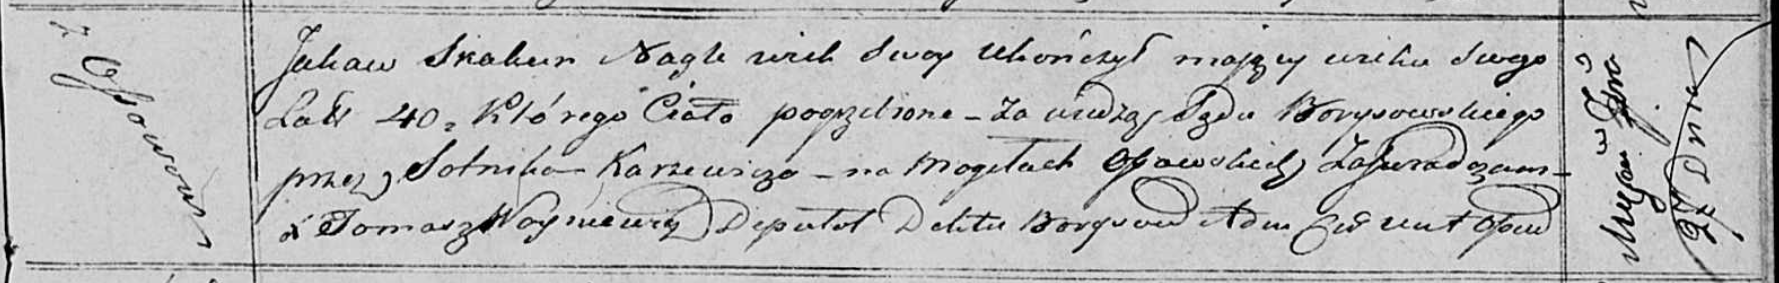 z Ossowa
Jakow Skakun Nagle wiek swoy Ukończył mający wieku swego
Lat 40, Którego Ciało pogrzebione – za wiedzą Sądu Borysowskiego
przez Sotnika Karzewicza – na Mogiłach Osowskich Zaświadczam –
X Tomasz Woyniewicz Deputat Dektu Borysow Adm Cer Osow
Dnia